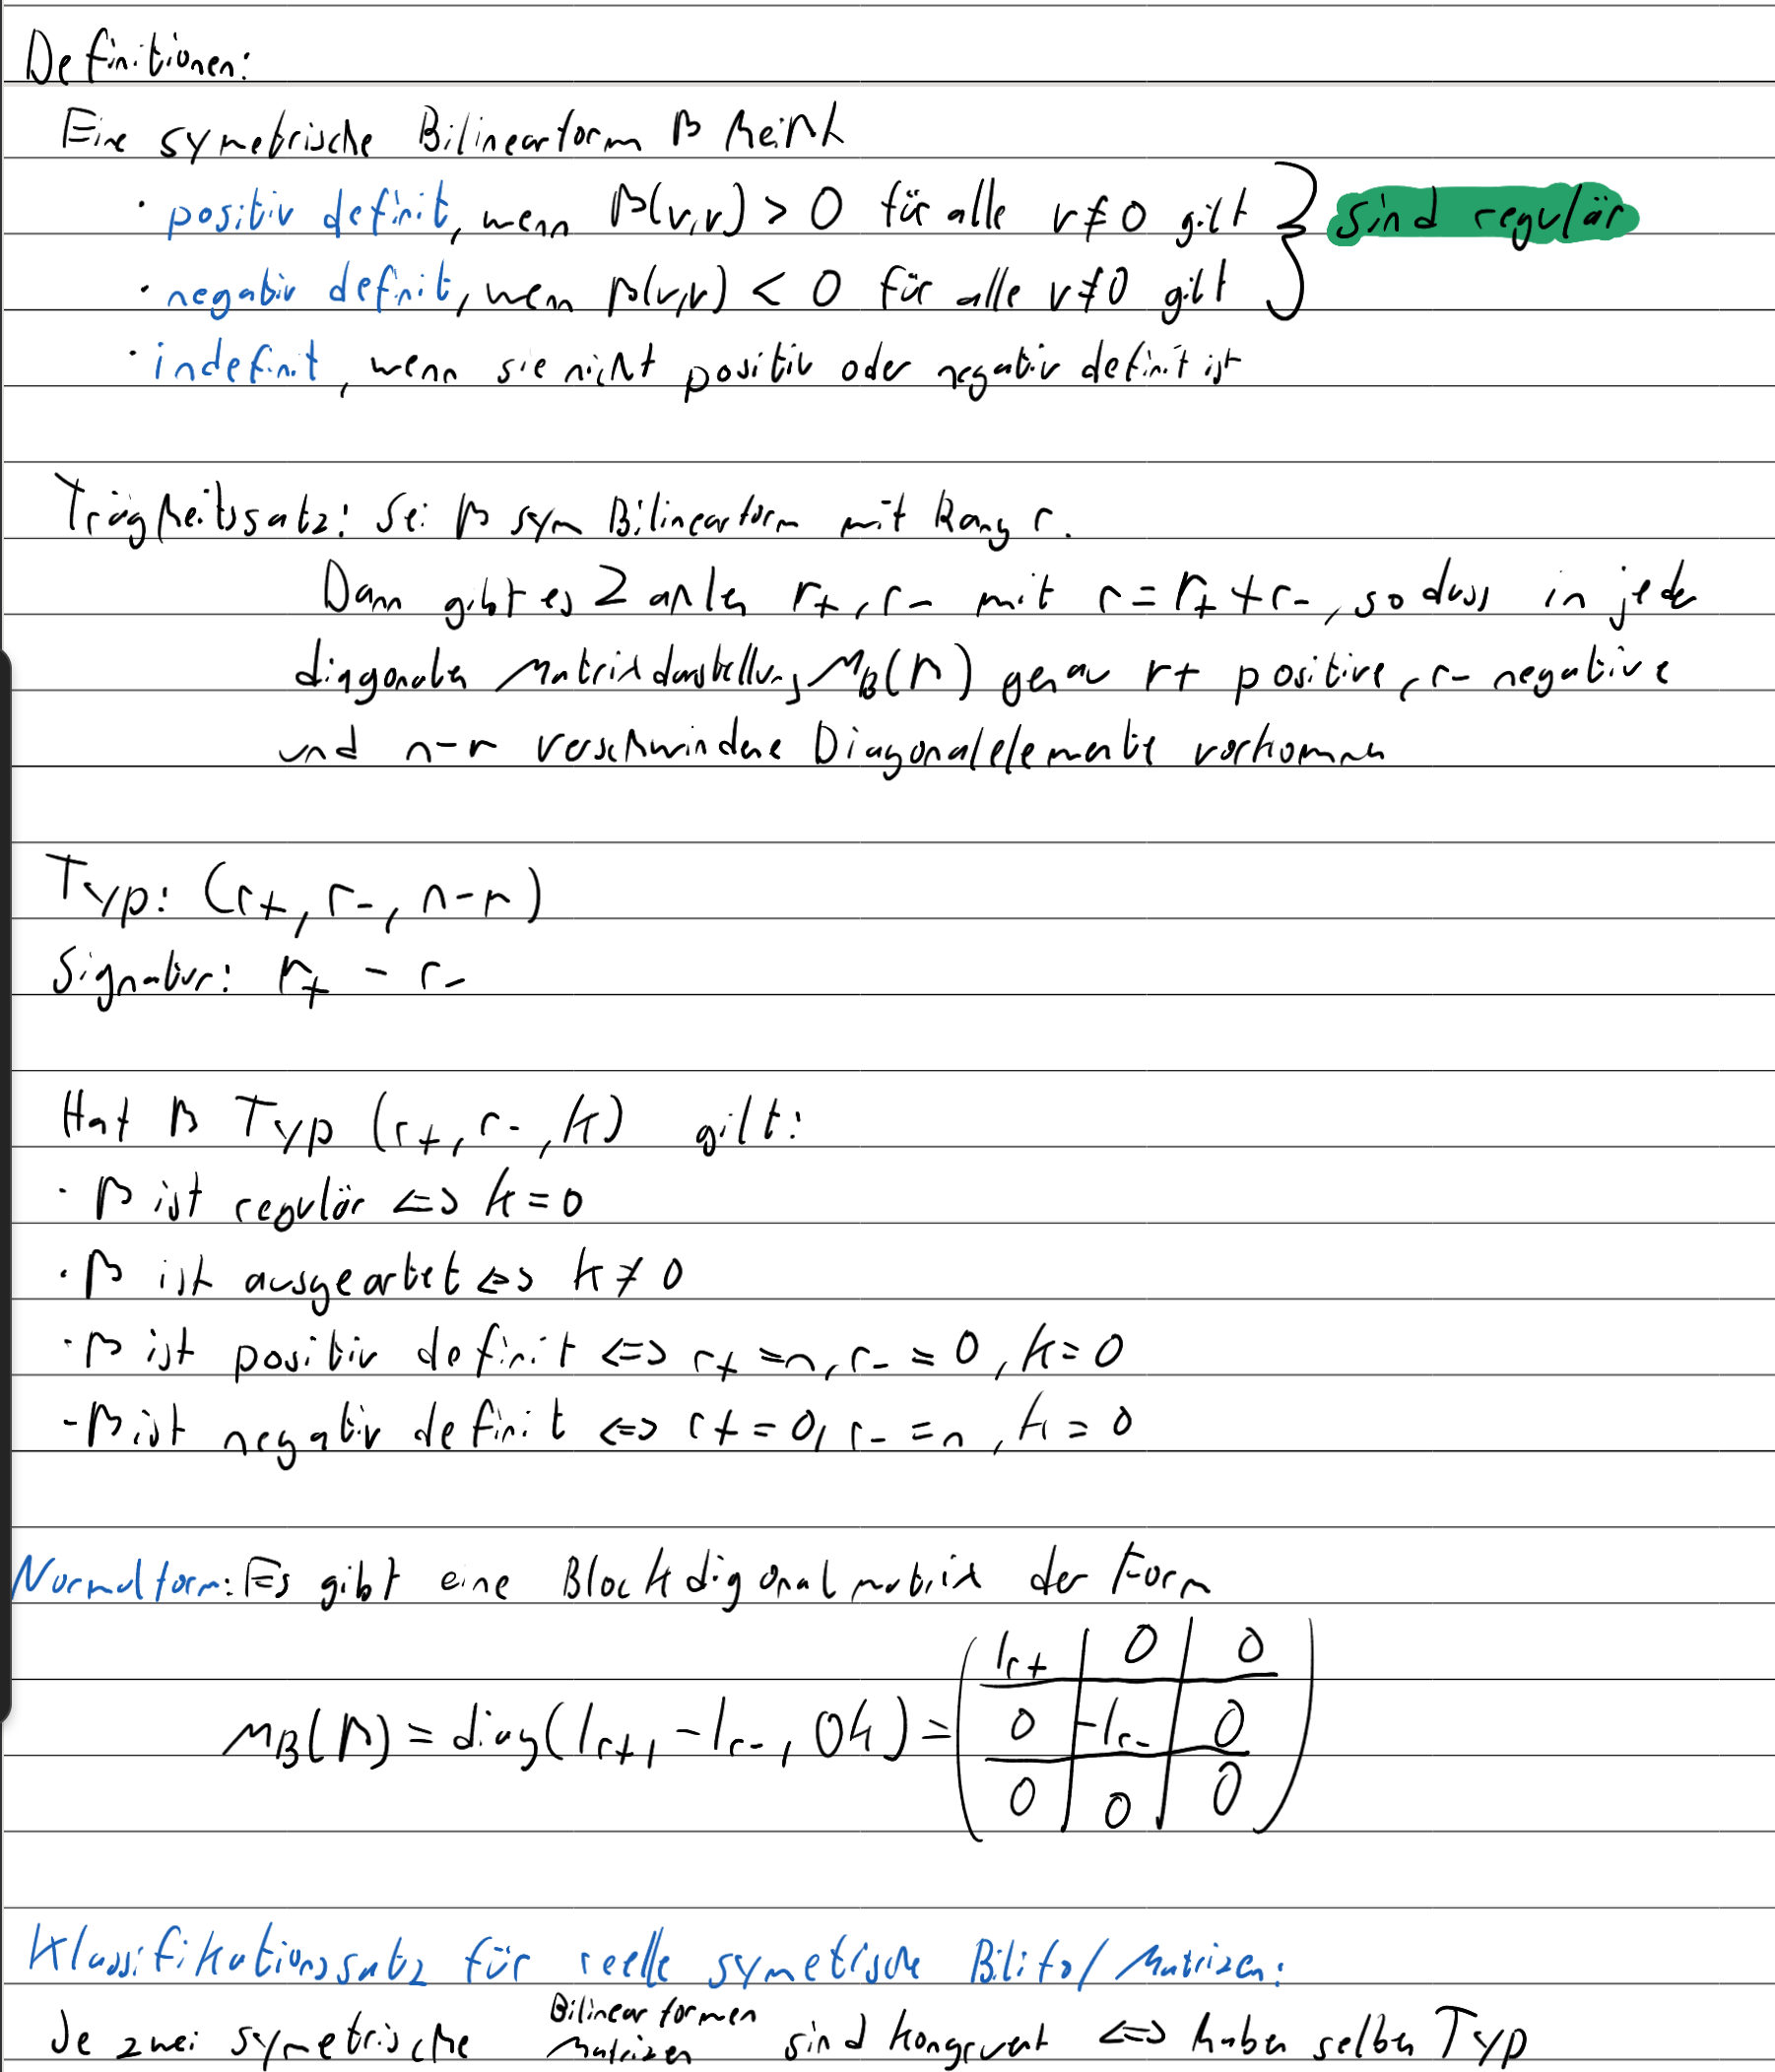 Definitionen:
Eine symetrische Bilinearform β heißt
· positiv definit, wenn β(v,v) > 0 für alle v ≠ 0 gilt } sind regulär
· negativ definit, wenn β(v,v) < 0 für alle v ≠ 0 gilt
· indefinit, wenn sie nicht positiv oder negativ definit ist
Trägheitssatz: Sei β sym Bilinearform mit Rang r.
Dann gibt es Zahlen r+, r- mit r = r+ + r-, so dass in jeder
diagonalen Matrixdarstellung MB(β) genau r+ positive, r- negative
und n-r verschwindene Diagonalelemente vorkommen
Typ: (r+, r-, n-r)
Signatur: r+ - r-
Hat β Typ (r+, r-, k) gilt:
· β ist regulär <=> k = 0
· β ist ausgeartet <=> k ≠ 0
· β ist positiv definit <=> r+ = n, r- = 0, k = 0
- β ist negativ definit <=> r+ = 0, r- = n, k = 0
Normalform: Es gibt eine Blockdigonalmatrix der Form
MB(β) = diag(1r+, -1r-, 0k) = ( 1r+ | 0 | 0
0 | -1r- | 0
0 | 0 | 0 )
Klassifikationssatz für reelle symetische Bilifo/Matrizen:
Je zwei symetrische Bilinearformen sind kongruent <=> haben selben Typ
Matrizen